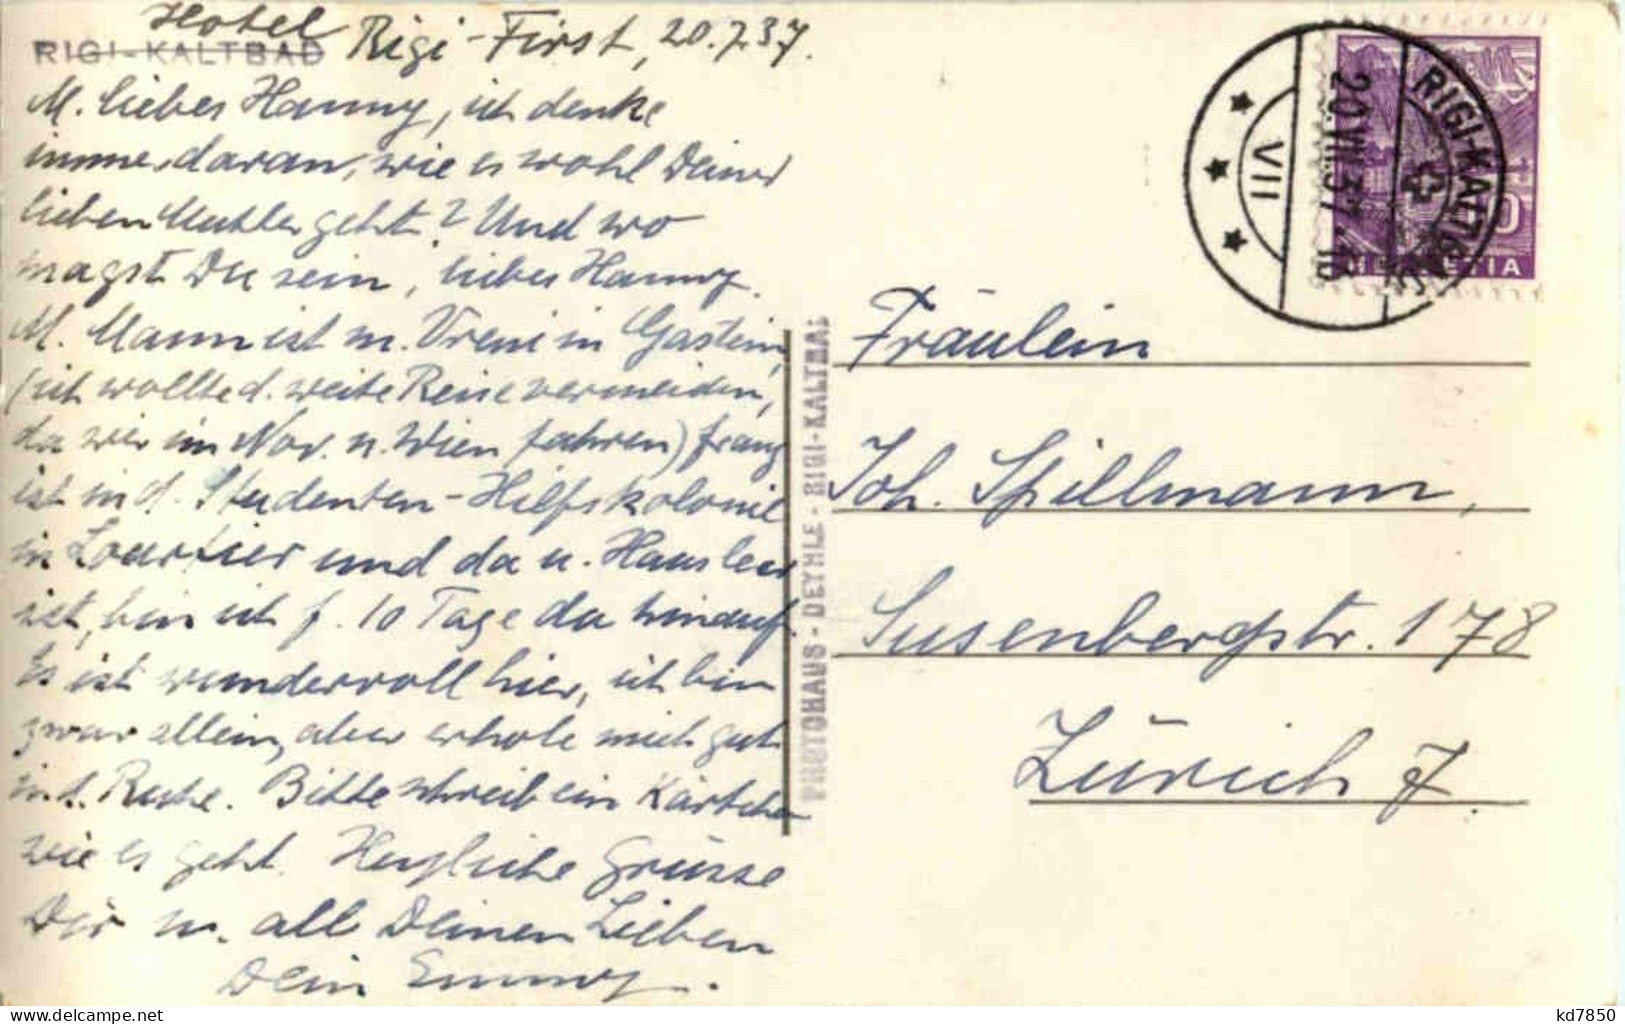 Hotel
RIGI-KALTBAD Rigi-First, 20.7.37.
M. liebes Hanny, ich denke
immer daran, wie es wohl Deiner
lieben Mutter geht? Und wo
magst Du sein, liebes Hanny.
M. Mann ist m. Vreni in Gastein,
(ich wollte d. weite Reise vermeiden,
da wir im Nov. n. Wien fahren) Franz
ist in d. Studenten-Hilfskolonie
in und da u. Haus leer
ist, bin ich f. 10 Tage da hinauf.
Es ist wundervoll hier, ich bin
zwar allein, aber erhole mich gut
in d. Ruhe. Bitte schreib ein Kärtchen
wie es geht. Herzliche Grüsse
Dir u. all Deinen Lieben
Dein Emmy.
PHOTOHAUS - DEYHLE - RIGI-KALTBAD
RIGI-KALTBAD
20.VII.37
VII
HELVETIA
Fräulein
Joh. Spillmann,
Susenbergstr. 178
Zürich 7.
kd7850